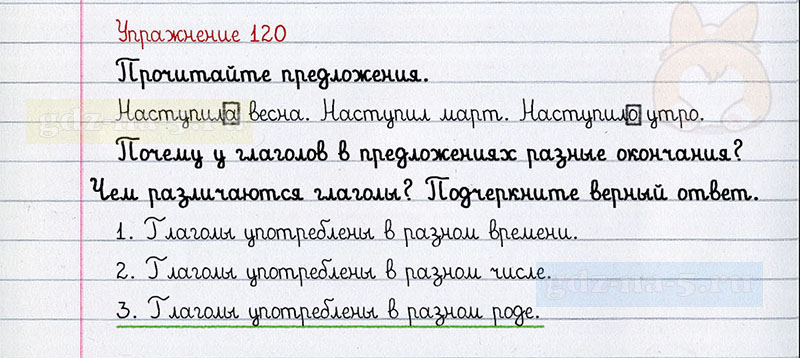 Упражнение 120
Прочитайте предложения.
Наступила весна. Наступил март. Наступило утро.
Почему у глаголов в предложениях разные окончания?
Чем различаются глаголы? Подчеркните верный ответ.
1. Глаголы употреблены в разном времени.
2. Глаголы употреблены в разном числе.
3. Глаголы употреблены в разном роде.
gdz-na-5.ru
gdz-na-5.ru